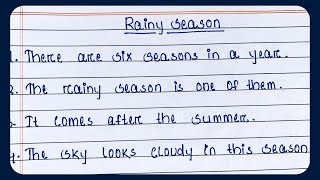 Rainy season
1. There are six seasons in a year.
2. The rainy season is one of them.
3. It comes after the summer.
4. The sky looks cloudy in this season